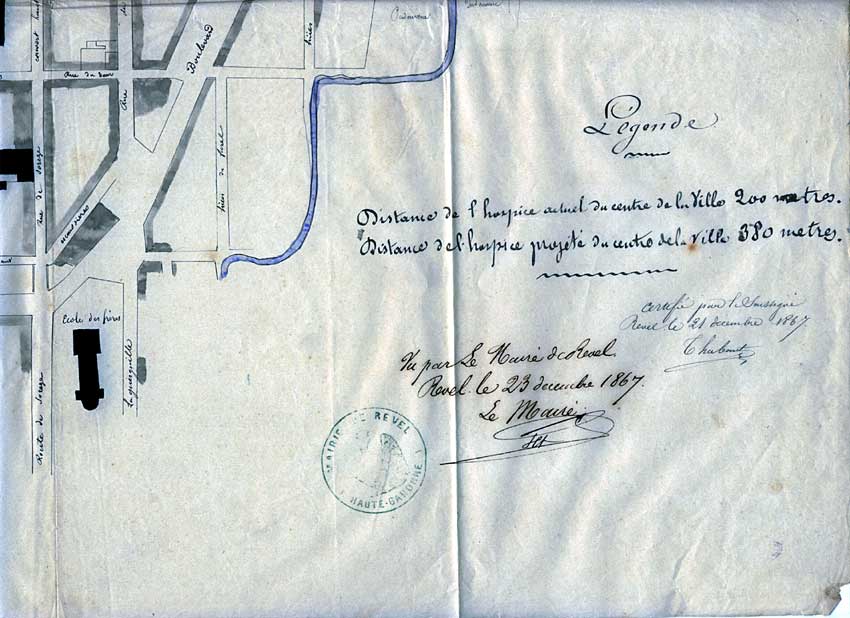 Légende
Distance de l'hospice actuel du centre de la Ville 200 metres.
Distance de l'hospice projeté du centre de la Ville 380 metres.
certifié par le Soussigné
Revel le 21 decembre 1867
Vu par Le Maire de Revel.
Revel le 23 decembre 1867.
Le Maire
MAIRIE DE REVEL
HAUTE-GARONNE
Boulevard
Rue du
Rue
Rue de Soreze
Ecole des frères
Route de Soreze